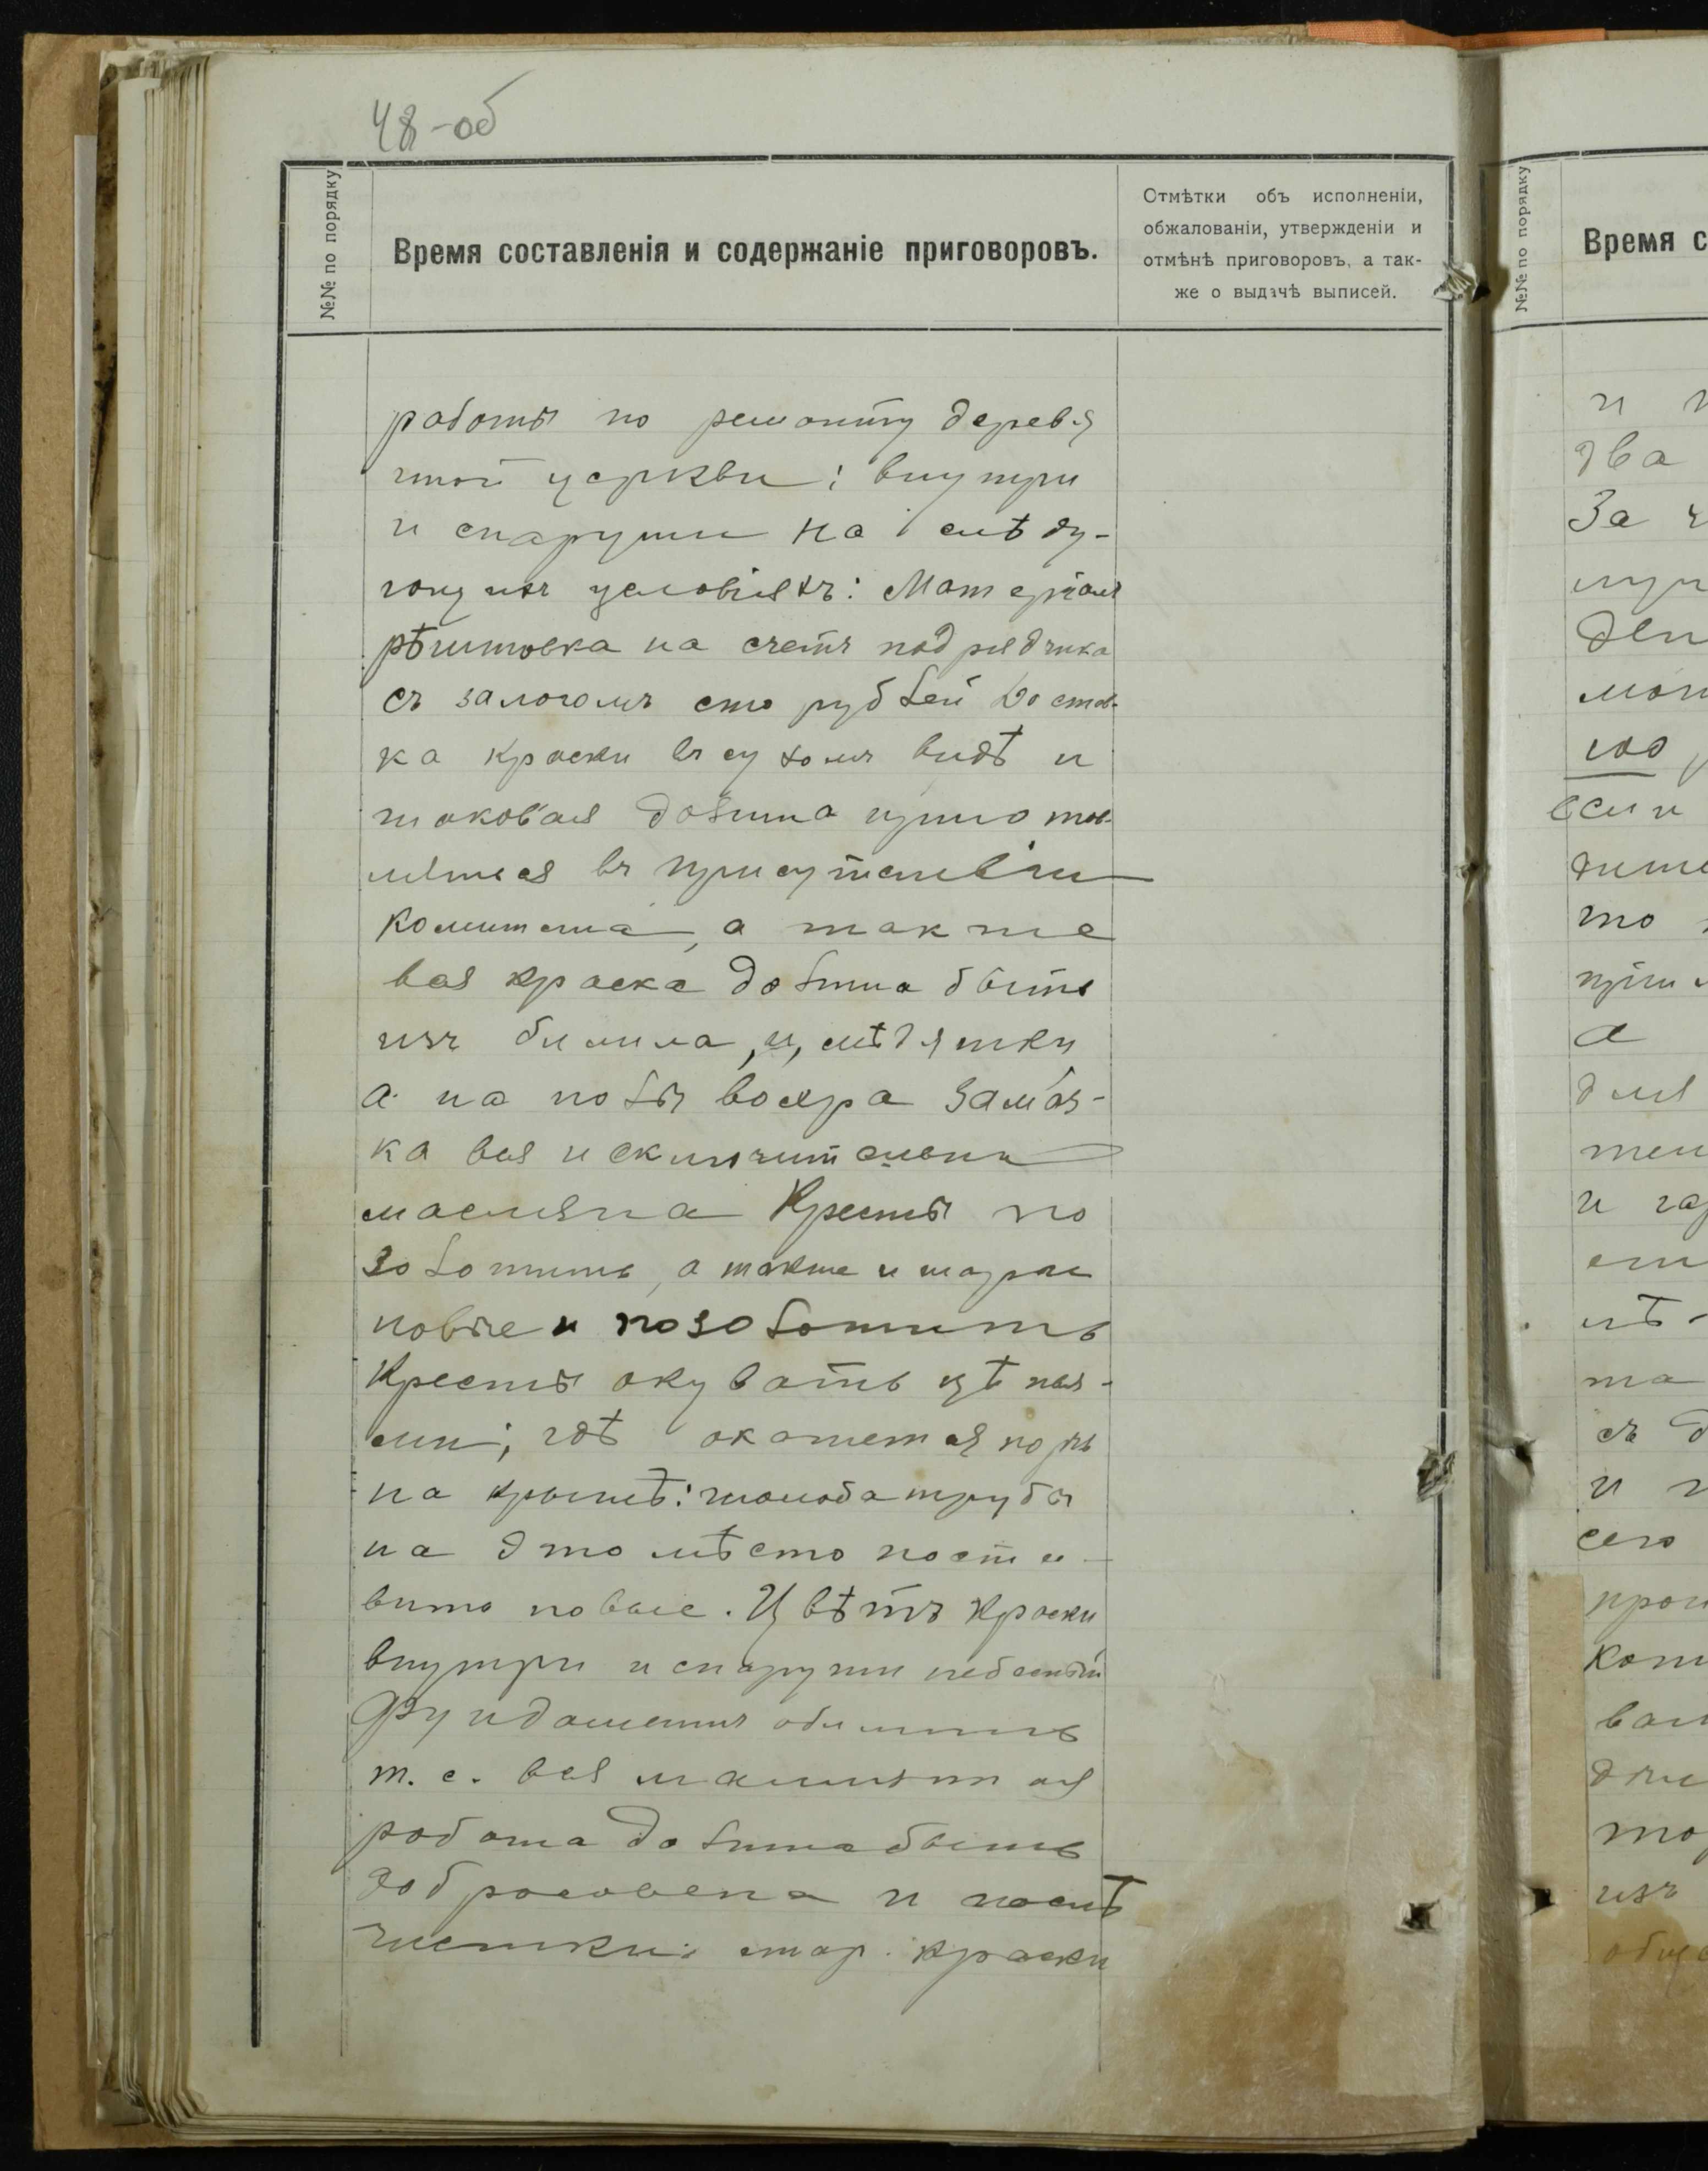 48-об
№№ по порядку
Время составленія и содержаніе приговоровъ.
Отмѣтки объ исполненіи,
обжалованіи, утвержденіи и
отмѣнѣ приговоровъ, а так-
же о выдачѣ выписей.
работы по ремонту деревя
ной церкви: внутри
и снаружи на слѣду-
ющихъ условіяхъ: Матеріалъ
рѣштовка на счетъ подрядчика
съ залогомъ сто рублей Достав-
ка краски въ сухомъ видѣ и
таковая должна приготов-
лятся въ присутствіи
комитета, а так же
вся краска должна быть
изъ билила, и,
а на полы вохра замаз-
ка вся исключительна
масляна Кресты по
золотить, а также и шары
новые и позолотить
Кресты окувать цѣпя-
ми; гдѣ окажется
на крышѣ: трубы
на это мѣсто поста-
вить новые. Цвѣтъ краски
внутри и снаружи небесный
Фундаментъ
т. е. вся
работа должна быть
добросовена и послѣ
чистки: стар. краски
№№ по порядку
Время с
и
два
За
ден
100
всии
то
а
для
и
лѣ-
та
съ д
и
сего
кот
изъ